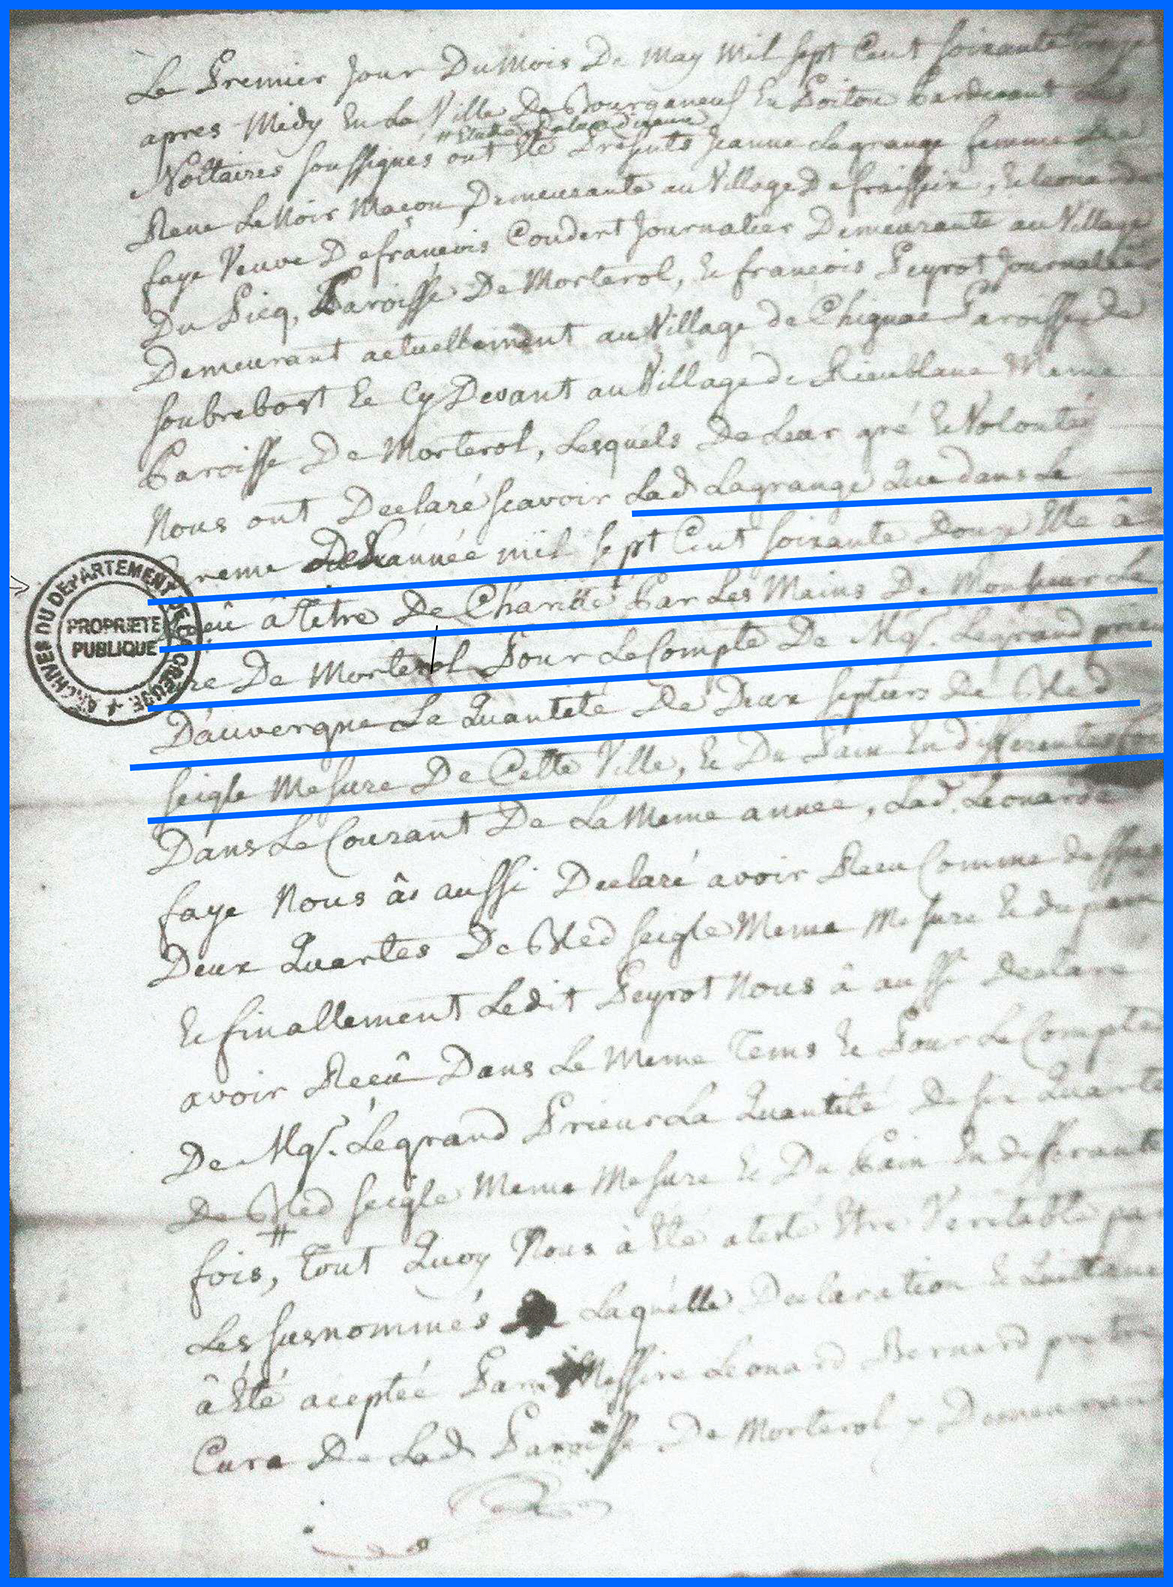 Le Premier Jour Du Mois De may mil sept Cent soixante treize
apres Midy En La Ville De Bourganeuf En Poitou Pardevant
Nottaires soussignes ont Eté Presents Jeanne Lagrange femme de
Rene Le Noir Maçon Demeurante au Village De fraissix, Et Leonarde
faye Veuve De françois Coudert Journalier Demeurante au Village
Du Picq, Paroisse De Morterol, Et francois Peyrot Journalier
Demeurant actuellement au Village de Chignac Paroisse de
soubrebost Et Cy Devant au Village de Rieublanc Meme
Paroisse De Morterol, Lesquels De Leur gré Et Volonté
Nous ont Declaré scavoir Lad. Lagrange Que dans Le
Careme De L'année mil sept Cent soixante Douze Elle â
Reçû â titre De Charitté Par Les Mains De Monsieur Le
Curé De Morterol Pour Le Compte De Mgr. Legrand prieur
D'auvergne La Quantité De Deux septiers De Bled
seigle Mesure De Cette Ville, Et Du Pain En differentes fois
Dans Le Courant De La Meme année, Lad. Leonarde
faye Nous â aussi Declaré avoir Reçu Comme dessus
Deux Quartes De Bled seigle Meme Mesure Et du pain
Et finallement Ledit Peyrot Nous â aussi declaré
avoir Reçû Dans Le Meme Tems Et Pour Le Compte
De Mgr. Legrand Prieur La Quantité de six Quartes
De Bled seigle Meme Mesure Et Du Pain En differantes
fois, Tout Quoy Nous à Eté atesté Etre Veritable par
Les susnommés Laquelle Declaration Et Quittance
â Eté aceptée Par Messire Léonard Bernard prêtre
Curé De Lad. Paroisse De Morterol y Demeurant
ARCHIVES DU DÉPARTEMENT DE LA CREUSE
PROPRIÉTÉ
PUBLIQUE